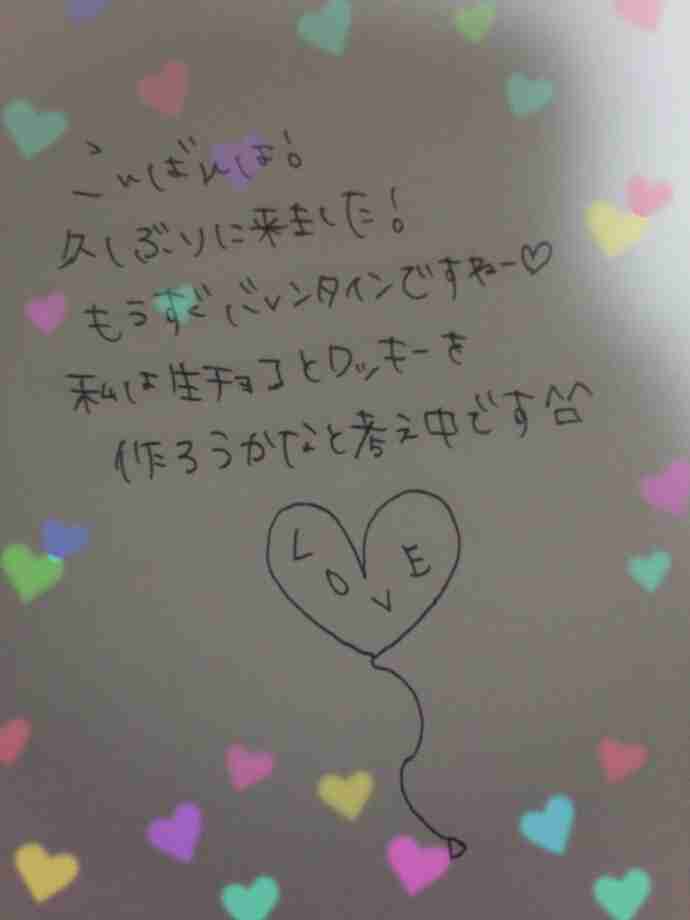 こんばんは!
久しぶりに来ました!
もうすぐバレンタインですねー♡
私は生チョコとロッキーを
作ろうかなと考え中です^□^
LOVE